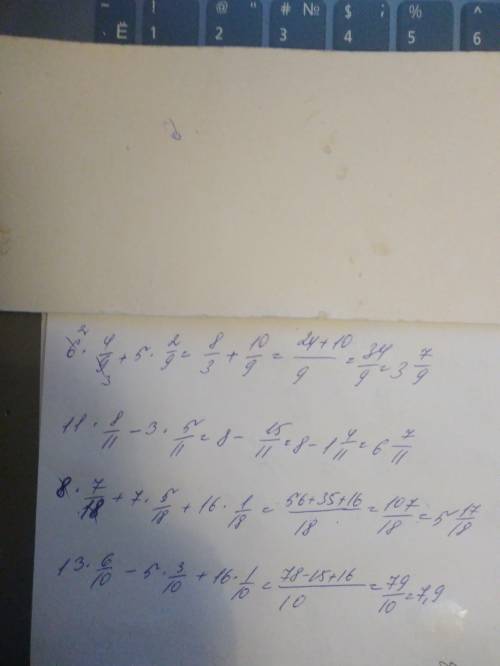 ~ ! @ " # № $ ; % ^
` Ё 1 2 3 4 5 6
6² · 4/9₃ + 5 · 2/9 = 8/3 + 10/9 = (24+10)/9 = 34/9 = 3 7/9
11 · 8/11 − 3 · 5/11 = 8 − 15/11 = 8 − 1 4/11 = 6 7/11
8 · 7/18 + 7 · 5/18 + 16 · 1/18 = (56+35+16)/18 = 107/18 = 5 17/18
13 · 6/10 − 5 · 3/10 + 16 · 1/10 = (78−15+16)/10 = 79/10 = 7,9